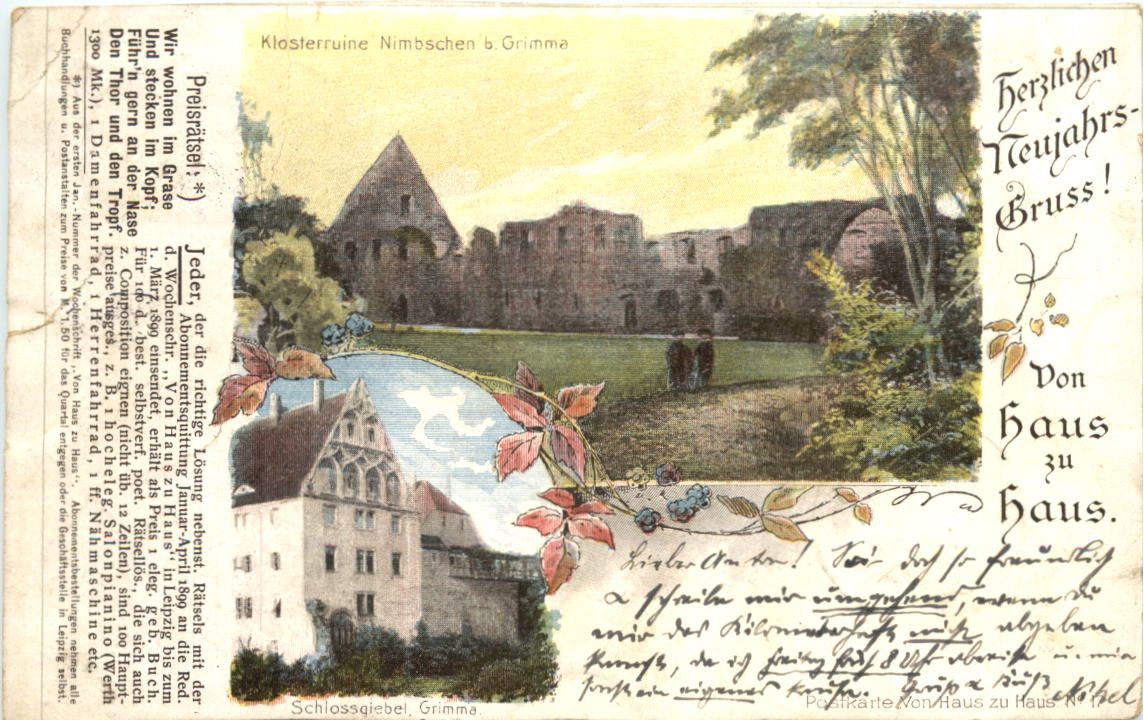 Klosterruine Nimbschen b. Grimma
Herzlichen
Neujahrs-
Gruss!
Von
Haus
zu
Haus.
Preisrätsel: *)
Wir wohnen im Grase
Und stecken im Kopf;
Führ'n gern an der Nase
Den Thor und den Tropf.
Jeder, der die richtige Lösung nebenst. Rätsels mit der
Abonnementsquittung Januar-April 1899 an die Red.
d. Wochenschr. „Von Haus zu Haus“ in Leipzig bis zum
1. März 1899 einsendet, erhält als Preis 1 eleg. geb. Buch.
Für 100 d. best. selbstverf. poet. Rätsellös., die sich auch
z. Composition eignen (nicht üb. 12 Zeilen), sind 100 Haupt-
preise ausges., z. B. 1 hocheleg. Salonpianino (Werth
1300 Mk.), 1 Damenfahrrad, 1 Herrenfahrrad, 1 ff. Nähmaschine etc.
*) Aus der ersten Jan.-Nummer der Wochenschrift „Von Haus zu Haus“. Abonnementsbestellungen nehmen alle
Buchhandlungen u. Postanstalten zum Preise von M. 1,50 für das Quartal entgegen oder die Geschäftsstelle in Leipzig selbst.
Lieber Anton! Sei doch so freundlich
& schreibe mir umgehend, wenn Du
mir das nicht abgeben
kannst, da ich Freitag früh 8 Uhr abreise u. mir
sonst ein eigenes kaufe. Gruß & Kuß
Schlossgiebel, Grimma.
Postkarte Von Haus zu Haus No